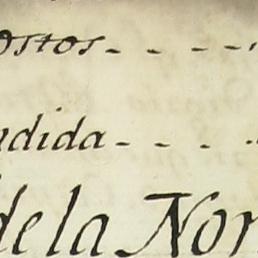 ostos- - - -
ndida- - - -
de la Nor